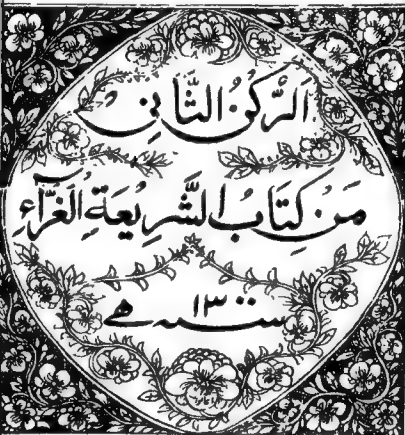 اَلرُّكنُ الثَّانِي
مَن كِتَابُ الشَّرِيعَةِ الغَرَّآءِ
سنة ١٣ هـ